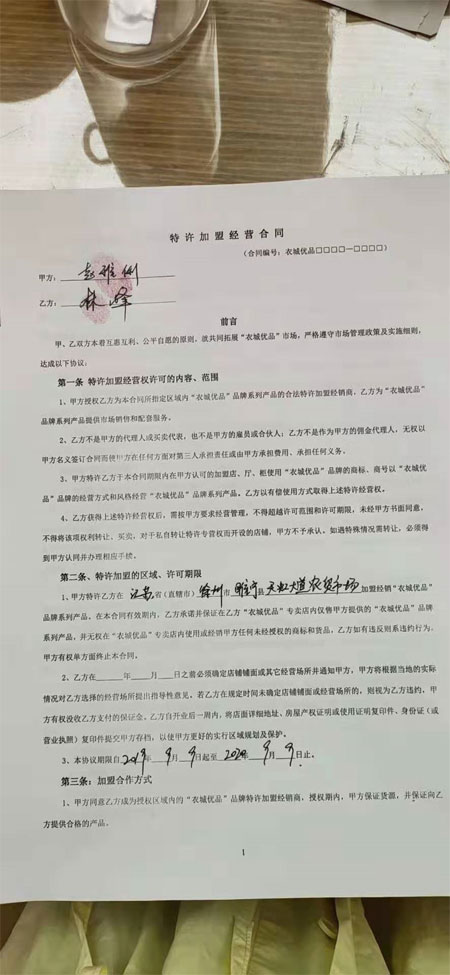 特许加盟经营合同
(合同编号：衣城优品□□□□—□□□□)
甲方：赵雅俐
乙方：林峰
前言
甲、乙双方本着互惠互利、公平自愿的原则，就共同拓展“衣城优品”市场，严格遵守市场管理政策及实施细则，
达成以下协议：
第一条 特许加盟经营权许可的内容、范围
1、甲方授权乙方为本合同所指定区域内“衣城优品”品牌系列产品的合法特许加盟经销商。乙方为“衣城优品”
品牌系列产品提供市场销售和配套服务。
2、乙方不是甲方的代理人或买卖代表，也不是甲方的雇员或合伙人；乙方不作为甲方的佣金代理人，无权以
甲方名义签订合同而使甲方在任何方面对第三人承担责任或由甲方承担费用、承担任何义务。
3、甲方特许乙方于本合同期限内在甲方认可的加盟店、厅、柜使用“衣城优品”品牌的商标、商号以“衣城优
品”品牌的经营方式和风格经营“衣城优品”品牌系列产品。乙方以有偿使用方式取得上述特许经营权。
4、乙方获得上述特许经营权后，需按甲方要求经营管理，不得超越许可范围和许可期限，未经甲方书面同意，
不得将该项权利转让、买卖，对于私自转让特许专营权而开设的店铺，甲方不予承认。如遇特殊情况需转让，必须得
到甲方认同并办理相应手续。
第二条、特许加盟的区域、许可期限
1、甲方特许乙方在 江苏 省（直辖市）徐州 市 睢宁 县 天虹大道农贸市场 加盟经销“衣城优品”
品牌系列产品。在本合同有效期内，乙方承诺并保证在乙方“衣城优品”专卖店内仅售甲方提供的“衣城优品”品牌
系列产品，并无权在“衣城优品”专卖店内使用或经销甲方任何未经授权的商标和货品，乙方如有违反则系违约行为，
甲方有权单方面终止本合同。
2、乙方在____年____月____日之前必须确定店铺铺面或其它经营场所并通知甲方，甲方将根据当地的实际
情况对乙方选择的经营场所提出指导性意见，若乙方在规定时间未确定店铺铺面或经营场所的，则视为乙方违约，甲
方有权没收乙方支付的保证金。乙方自开业后一周内，将店面详细地址、房屋产权证明或使用证明复印件、身份证（或
营业执照）复印件提交甲方存档，以使甲方更好的实行区域规划及保护。
3、本协议期限自2019年 9 月 9 日起至 2020年 9 月 9 日止。
第三条：加盟合作方式
1、甲方同意乙方成为授权区域内的“衣城优品”品牌特许加盟经销商，授权期内，甲方保证货源，并保证向乙
方提供合格的产品。
1